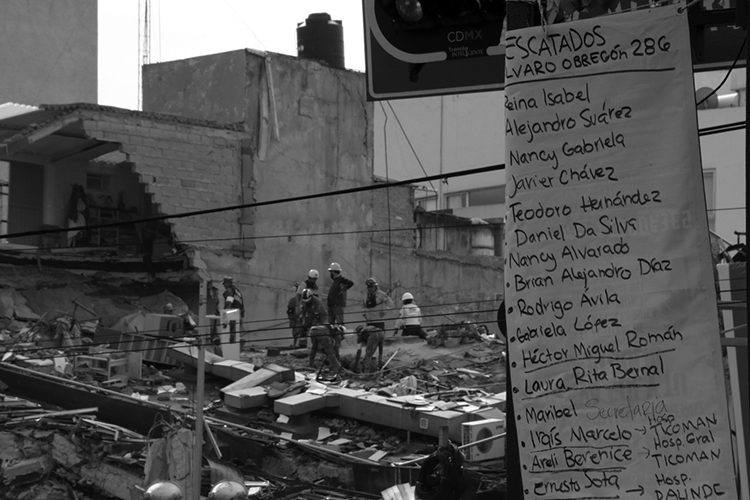 CDMX
ESCATADOS
LVARO OBREGÓN 286
Reina Isabel
Alejandro Suárez
Nancy Gabriela
Javier Chávez
• Teodoro Hernández
• Daniel Da Silva
• Nancy Alvarado
• Brian Alejandro Díaz
• Rodrigo Ávila
• Gabriela López
• Héctor Miguel Román
• Laura Rita Bernal
• Maribel Secretaria
• Irais Marcelo → Hosp TICOMAN
• Areli Berenice → Hosp. Gral TICOMAN
• Ernesto Sota → Hosp.